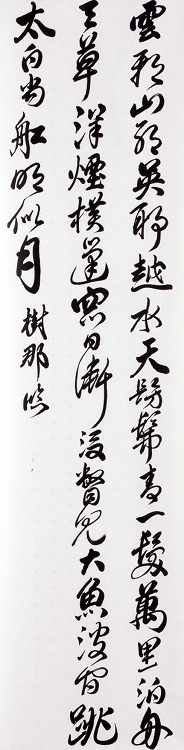 雲耶山耶呉耶越水天髣髴青一髪萬里泊舟
天草洋煙横篷窓日漸没瞥見大魚波間跳
太白当船明似月 樹那臨